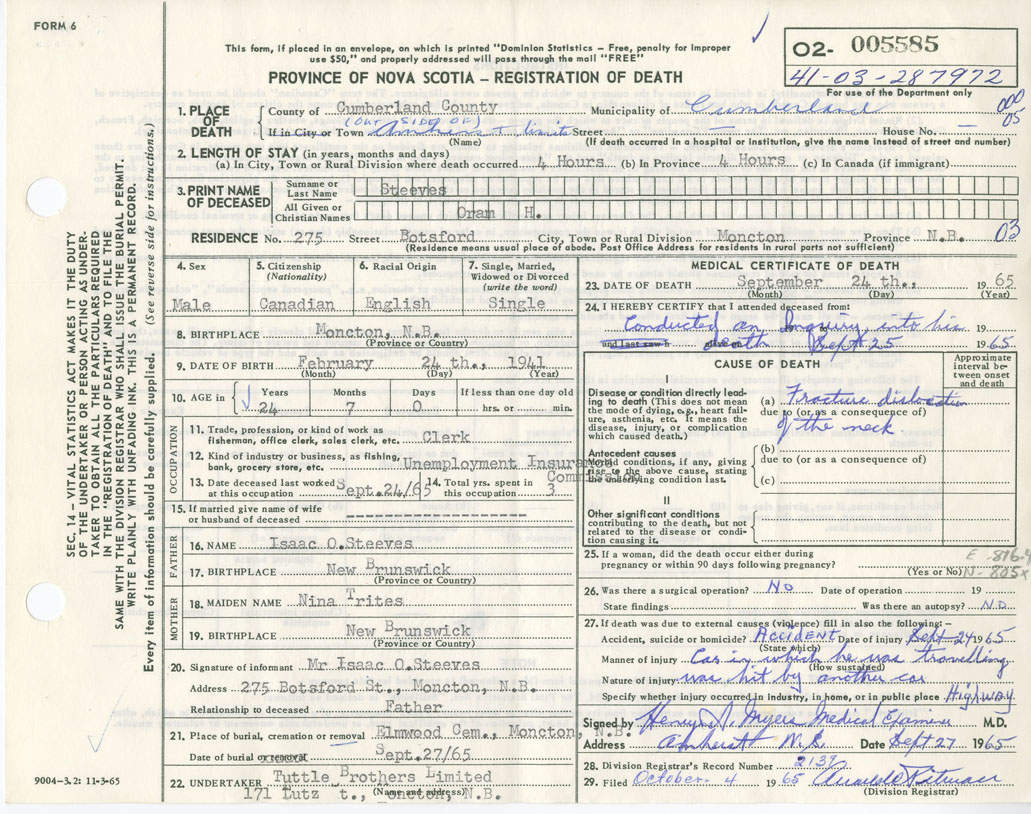 FORM 6
This form, if placed in an envelope, on which is printed "Dominion Statistics – Free, penalty for improper
use $50," and properly addressed will pass through the mail "FREE"
PROVINCE OF NOVA SCOTIA – REGISTRATION OF DEATH
02- 005585
41-03-287972
For use of the Department only
000
05
SEC. 14 – VITAL STATISTICS ACT MAKES IT THE DUTY
OF THE UNDERTAKER OR PERSON ACTING AS UNDER-
TAKER TO OBTAIN ALL THE PARTICULARS REQUIRED
IN THE "REGISTRATION OF DEATH" AND TO FILE THE
SAME WITH THE DIVISION REGISTRAR WHO SHALL ISSUE THE BURIAL PERMIT.
WRITE PLAINLY WITH UNFADING INK. THIS IS A PERMANENT RECORD.
Every item of information should be carefully supplied. (See reverse side for instructions.)
1. PLACE OF DEATH County of Cumberland County Municipality of Cumberland
(OUT SIDE OF)
If in City or Town Amherst Limits Street House No. —
(Name) (If death occurred in a hospital or institution, give the name instead of street and number)
2. LENGTH OF STAY (in years, months and days)
(a) In City, Town or Rural Division where death occurred 4 Hours (b) In Province 4 Hours (c) In Canada (if immigrant)
3. PRINT NAME OF DECEASED Surname or Last Name Steeves
All Given or Christian Names Oram H.
RESIDENCE No. 275 Street Botsford City, Town or Rural Division Moncton Province N.B. 03
(Residence means usual place of abode. Post Office Address for residents in rural parts not sufficient)
4. Sex 5. Citizenship (Nationality) 6. Racial Origin 7. Single, Married, Widowed or Divorced (write the word)
Male Canadian English Single
8. BIRTHPLACE Moncton, N.B.
(Province or Country)
9. DATE OF BIRTH February 24 th., 1941
(Month) (Day) (Year)
10. AGE in Years Months Days If less than one day old
24 7 0 hrs. or min.
OCCUPATION
11. Trade, profession, or kind of work as
fisherman, office clerk, sales clerk, etc. Clerk
12. Kind of industry or business, as fishing,
bank, grocery store, etc. Unemployment Insurance
13. Date deceased last worked at this occupation Sept.24/65 14. Total yrs. spent in this occupation 3
15. If married give name of wife
or husband of deceased ----------------
FATHER
16. NAME Isaac O.Steeves
17. BIRTHPLACE New Brunswick
(Province or Country)
MOTHER
18. MAIDEN NAME Nina Trites
19. BIRTHPLACE New Brunswick
(Province or Country)
20. Signature of informant Mr Isaac O.Steeves
Address 275 Botsford St., Moncton, N.B.
Relationship to deceased Father
21. Place of burial, cremation or removal Elmwood Cem., Moncton, N.B.
Date of burial or removal Sept.27/65
22. UNDERTAKER Tuttle Brothers Limited
171 Lutz t., Moncton, N.B.
(Name and address)
9004-3.2: 11-3-65
MEDICAL CERTIFICATE OF DEATH
23. DATE OF DEATH September 24 th., 1965
(Month) (Day) (Year)
24. I HEREBY CERTIFY that I attended deceased from:
Conducted an Inquiry into his 19
and last saw h death Sept 25 1965.
CAUSE OF DEATH
Approximate interval between onset and death
I
Disease or condition directly lead-
ing to death (This does not mean
the mode of dying, e.g., heart fail-
ure, asthenia, etc. It means the
disease, injury, or complication
which caused death.)
(a) Fracture dislocation
due to (or as a consequence of)
of the neck
Antecedent causes
Morbid conditions, if any, giving
rise to the above cause, stating
the underlying condition last.
(b)
due to (or as a consequence of)
(c)
II
Other significant conditions
contributing to the death, but not
related to the disease or condi-
tion causing it.
25. If a woman, did the death occur either during
pregnancy or within 90 days following pregnancy?
(Yes or No)
26. Was there a surgical operation? No Date of operation 19
State findings Was there an autopsy? No
27. If death was due to external causes (violence) fill in also the following:–
Accident, suicide or homicide? ACCIDENT Date of injury Sept 24 1965
(State which)
Manner of injury Car in which he was travelling
(How sustained)
Nature of injury was hit by another car
Specify whether injury occurred in industry, in home, or in public place Highway
Signed by Henry A. Myers Medical Examiner M.D.
Address Amherst N.S. Date Sept 27 1965
28. Division Registrar's Record Number 2137
29. Filed October 4 1965
(Division Registrar)